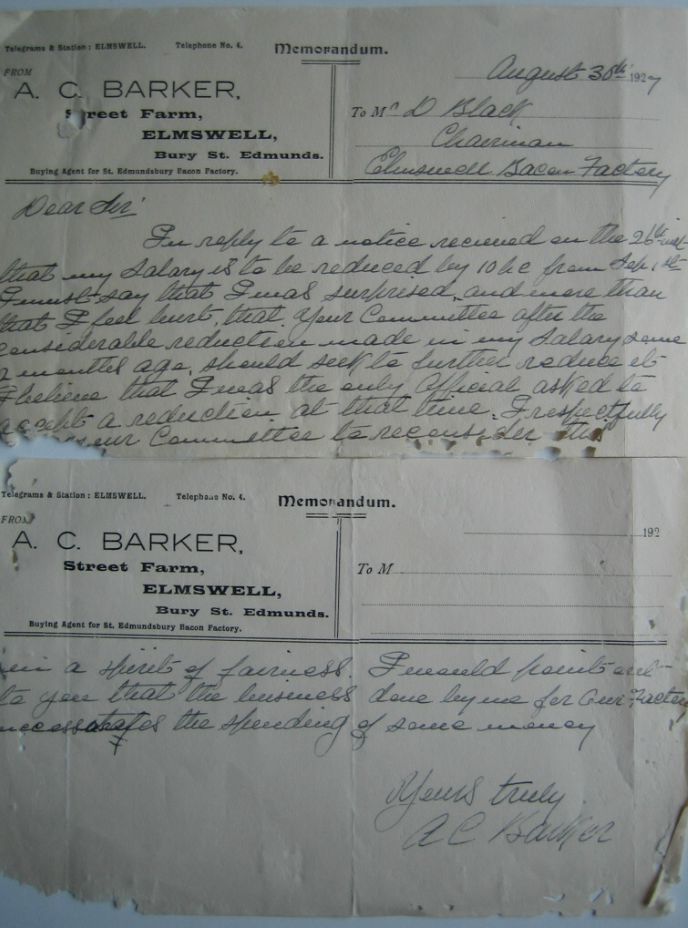 Telegrams & Station: ELMSWELL. Telephone No. 4. Memorandum.
FROM
A. C. BARKER,
Street Farm,
ELMSWELL,
Bury St. Edmunds.
Buying Agent for St. Edmundsbury Bacon Factory.
August 30th 1927
To Mr D Black
Chairman
Elmswell Bacon Factory
Dear Sir
In reply to a notice recieved on the 26th inst
that my Salary is to be reduced by 10 per from Sep 1st
I must say that I was surprised, and more than
that I feel hurt, that Your Committee after the
considerable reduction made in my Salary some
months ago, should seek to further reduce it
I believe that I was the only Official asked to
accept a reduction at that time. I respectfully
our Committee to reconsider this
Telegrams & Station: ELMSWELL. Telephone No. 4. Memorandum.
FROM
A. C. BARKER,
Street Farm,
ELMSWELL,
Bury St. Edmunds.
Buying Agent for St. Edmundsbury Bacon Factory.
192
To M
in a spirit of fairness. I would point out
to you that the business done by me for Our Factory
necessatates the spending of some money
Yours truly
A C Barker